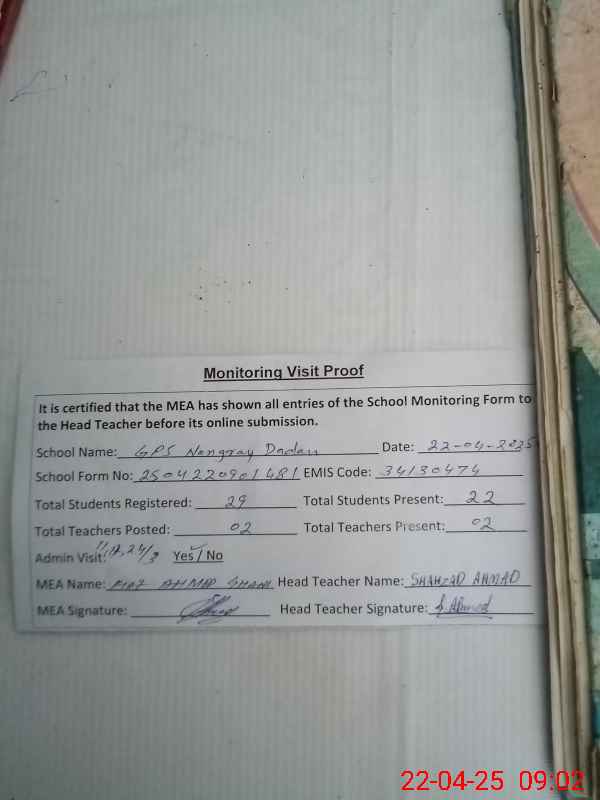 Monitoring Visit Proof
It is certified that the MEA has shown all entries of the School Monitoring Form to
the Head Teacher before its online submission.
School Name: GPS Nangray Dadan Date: 22-04-2025
School Form No: 2504220901481 EMIS Code: 34130474
Total Students Registered: 29 Total Students Present: 22
Total Teachers Posted: 02 Total Teachers Present: 02
Admin Visit: Yes / No
MEA Name: AHMAD Head Teacher Name: SHAHZAD AHMAD
MEA Signature: Head Teacher Signature: S.Ahmed
22-04-25 09:02